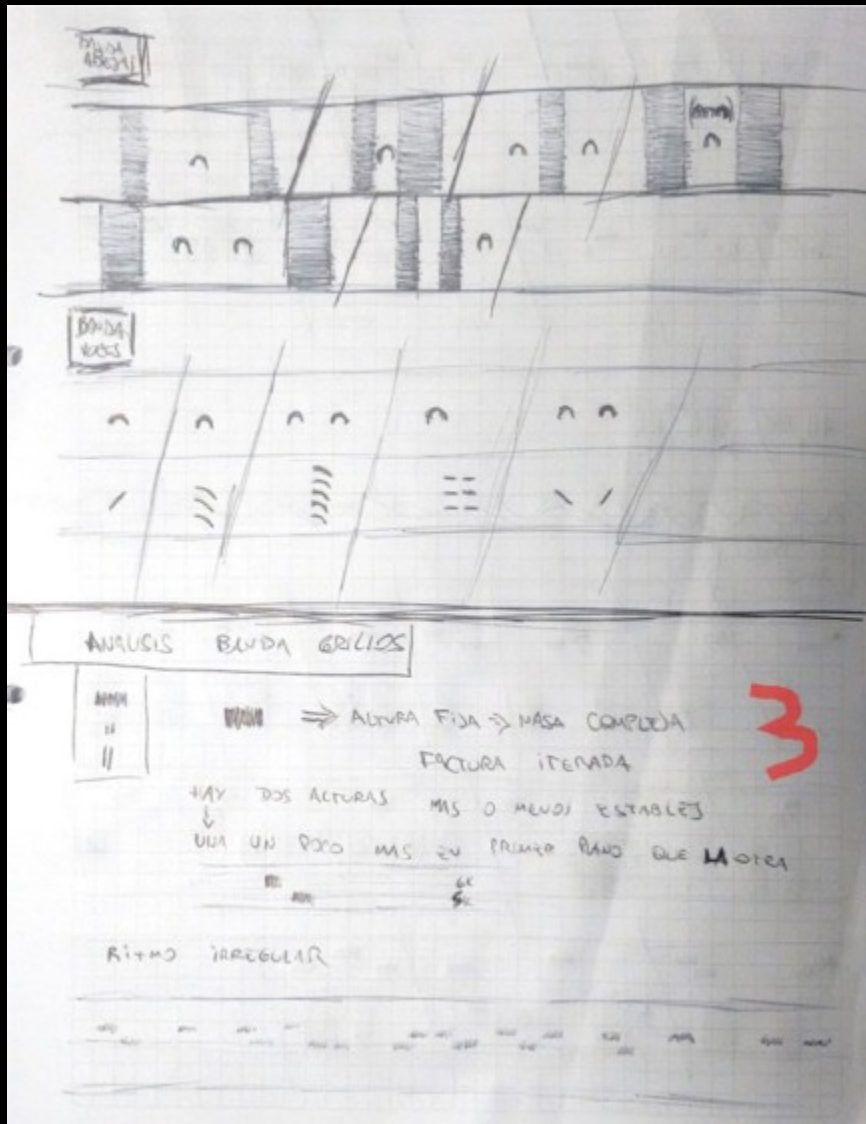 BANDA
BANDA
VOCES
ANALISIS BANDA GRILLOS
⇒ ALTURA FIJA → MASA COMPLEJA
FACTURA ITERADA
3
HAY DOS ALTURAS MAS O MENOS ESTABLES
↓
UNA UN POCO MAS EN PRIMER PLANO QUE LA OTRA
6K
5K
RITMO IRREGULAR